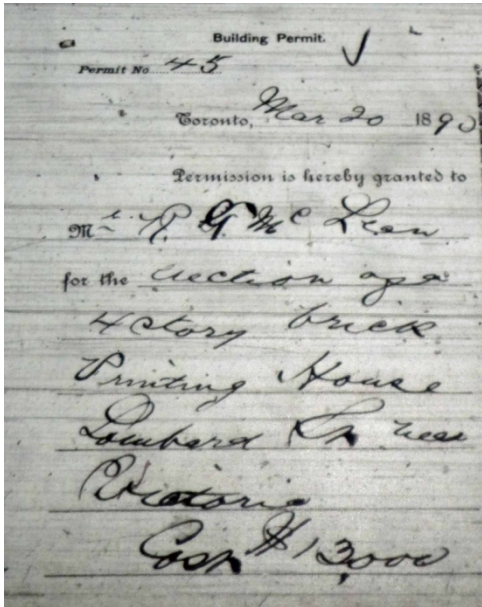 Building Permit.
Permit No. 45
Toronto, Mar 20 1890
Permission is hereby granted to
Mr. R G McLean
for the erection of a
4 story brick
Printing House
Lombard St near
Victoria
Cost $13000